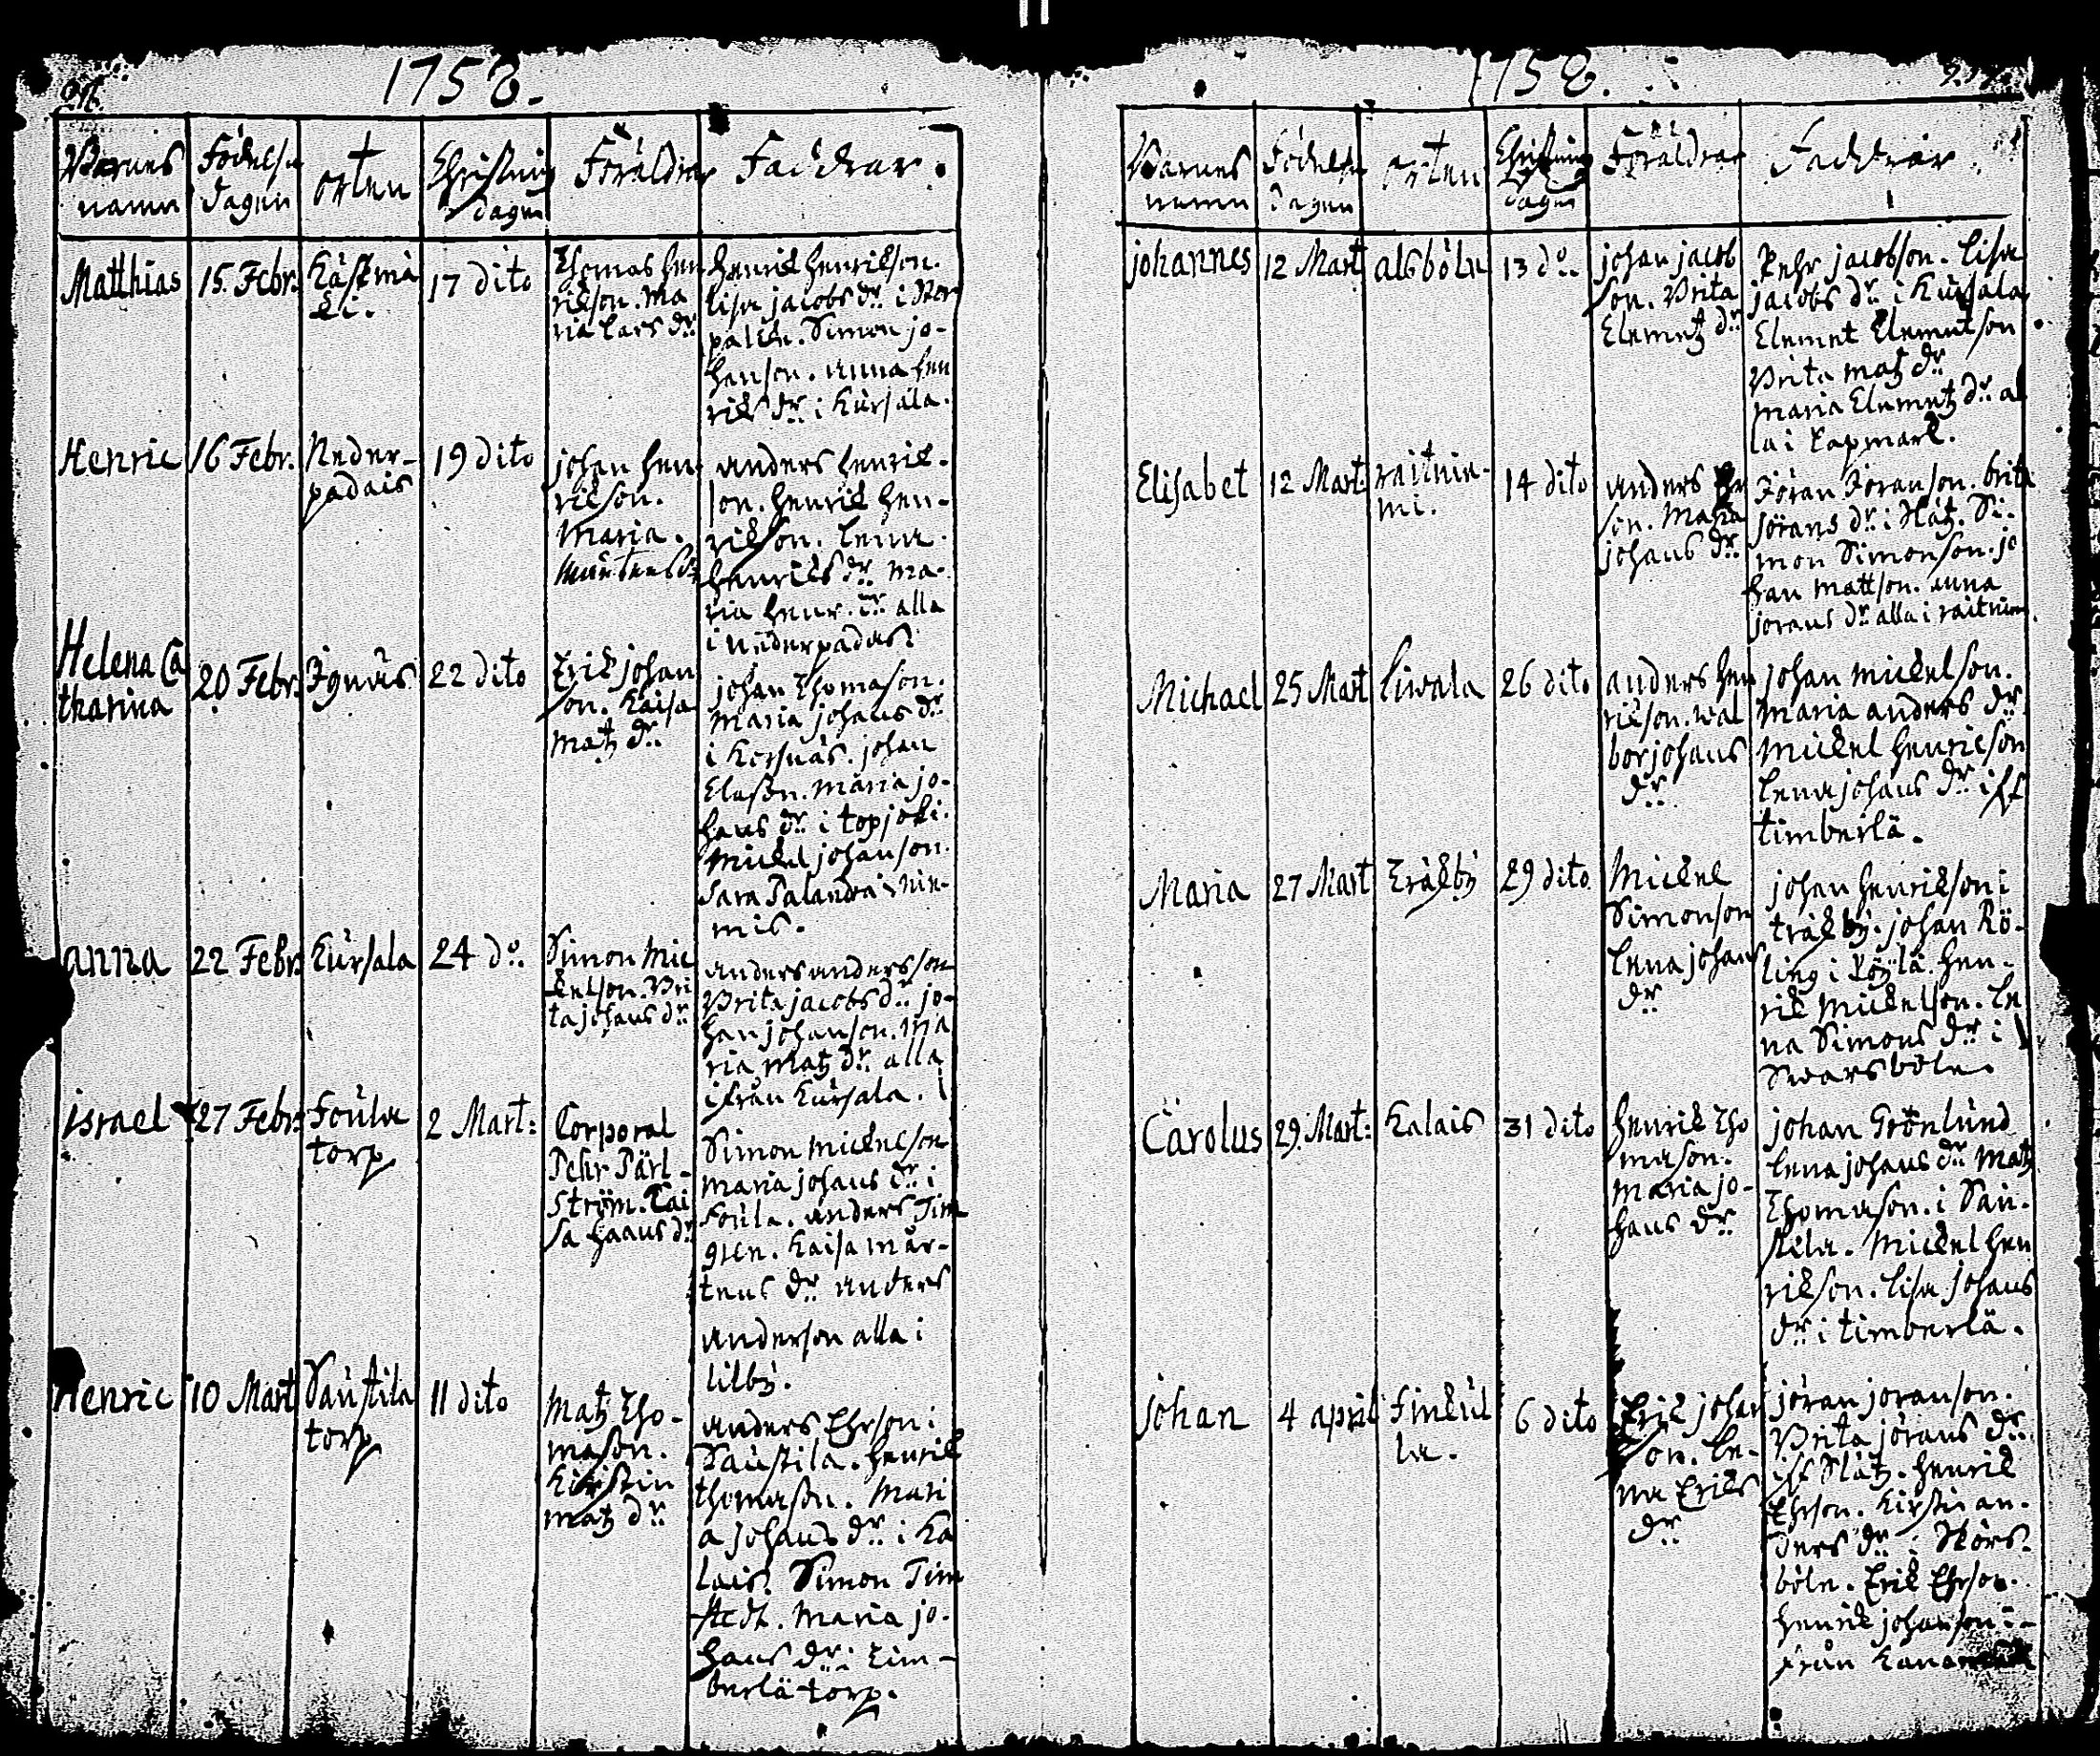 1758.
Barnes
namn
Födelse
dagen
orten
Christnings
dagen
Föräldrar
Faddrar.
Matthias
15. Febr.
Käkimä
ki.
17 dito
Thomas Hen
rikson. Ma
ria Lars dr.
Henrik Henrikson.
Lisa jacobs dr. i
Simon jo-
hanson. anna Hen
riks dr. i Kursala.
Henric
16 Febr.
Neder-
padais
19 dito
johan Hen
rikson.
Maria.
Mårtensdr
anders Henrik.
son. Henrik Hen-
rikson. Lena
Henriks dr. Ma-
ria Henr. dr. alla
i Nederpadais.
Helena Ca
tharina
20 Febr.
Ignäs
22 dito
Erik johan
son. Kaisa
Matz dr.
johan Thomason.
Maria johans dr.
i Kersnäs. johan
Clason. Maria jo-
hans dr. i topjoki.
Mickel johanson.
Sara Palandra i Nie-
mis.
anna
22 Febr.
Kursala
24 do.
Simon Mic
kelson. Bri
ta johans dr.
anders andersson
Brita jacobs dr. jo-
han johanson. Ma
ria Matz dr. alla
ifrån Kursala.
israel
27 Febr.
Soula
torp
2 Mart:
Corporal
Pehr Pärl-
ström. Cai
sa Haans dr
Simon Mickelson
Maria johans dr. i
Soula. anders Tim
gren. Kaisa mår-
tens dr. anders
anderson alla i
lilby.
Henric
10 Mart
Saustila
torp
11 dito
Matz Tho-
mason.
Kirstin
Matz dr.
anders Ehrson i
Saustila. Henrik
thomason. Mari
a johans dr. i Ka
lais. Simon Tim
stedt. Maria jo-
hans dr. i Tim-
berlä torp.
1758.
Barnes
namn
Födelse
dagen
orten
Christnings
dagen
Föräldrar
Faddrar.
johannes
12 Mart
alsböle
13 do.
johan jacob
son. Brita
Clemetz dr
Pehr jacobson. Lisa
jacobs dr. i Kursala
Clemet Clemetson
Brita Matz dr.
Maria Clemetz dr. al
la i Lapmark.
Elisabet
12 Mart.
raitnie-
mi.
14 dito
anders Er
son. Maria
johans dr.
Jöran Jöranson. brita
Jörans dr. i Slätz. Si-
mon Simonson. jo
han Mattson. anna
jorans dr. alla i raitniem
Michael
25 Mart
Liwala
26 dito
anders Hen
rikson. wal
bor johans
dr.
johan Mickelson.
Maria anders dr.
Mickel Henricson
Lena johans dr. iff
timberlä.
Maria
27 Mart
Träkby
29 dito
Mickel
Simonson
Lena johans
dr
johan Henrikson i
träkby. johan Rö-
ling i Röylä. Hen-
rik Mickelson. Le
na Simons dr. i
Swarsböle.
Carolus
29. Mart:
Kalais
31 dito
Henrik Tho
mason.
Maria jo-
hans dr.
johan Grönlund
Lena johans dr. Matz
Thomason. i Sau-
stila. Mickel Hen
rikson. Lisa johans
dr. i timberlä.
johan
4 april
finkul
la.
6 dito
Erik johan
son. Le-
na Eriks
dr.
jöran joranson.
Brita jörans dr.
iff Slätz. Henrik
Ehrson. Kirstin an-
ders dr. i Störs-
böle. Erik Ehrson.
Henrik johanson i-
från